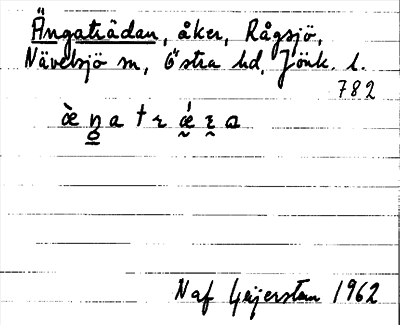 Ängaträdan, åker, Rågsjö,
Nävelsjö sn, Östra hd, Jönk. l.
782
Naf Geijerstam 1962